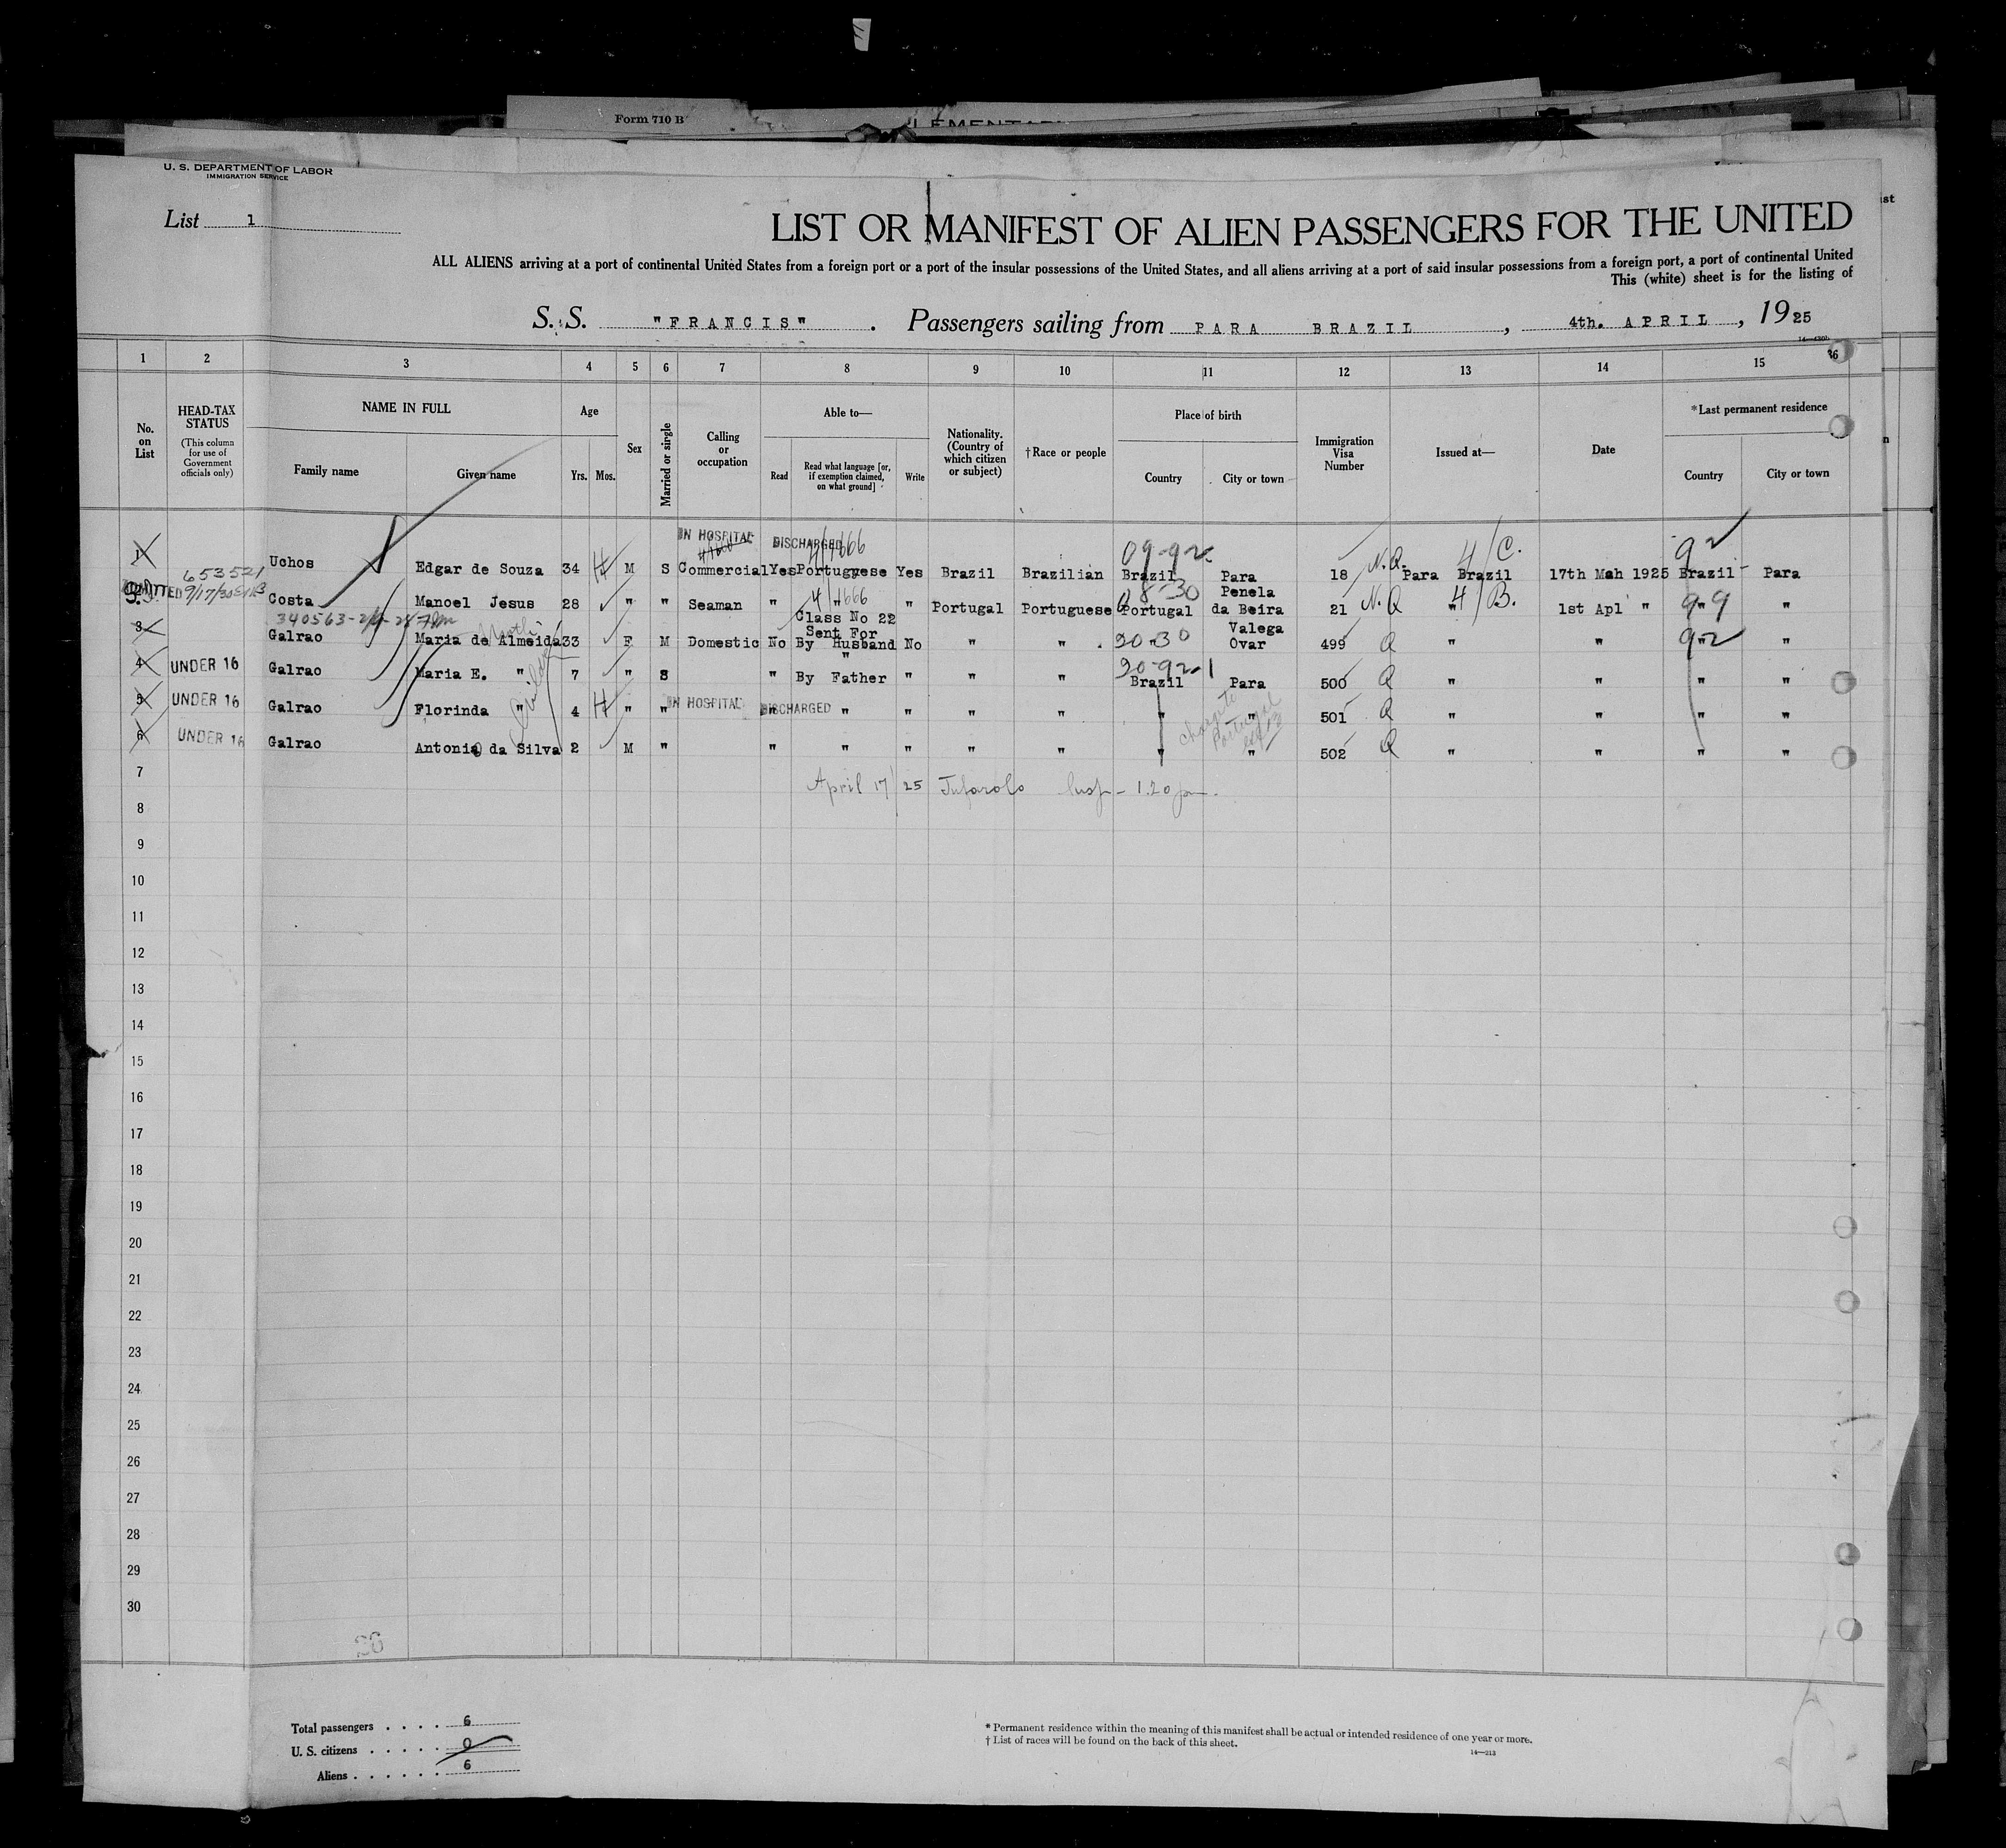 Form 710 B
U. S. DEPARTMENT OF LABOR
IMMIGRATION SERVICE
List 1
LIST OR MANIFEST OF ALIEN PASSENGERS FOR THE UNITED
ALL ALIENS arriving at a port of continental United States from a foreign port or a port of the insular possessions of the United States, and all aliens arriving at a port of said insular possessions from a foreign port, a port of continental United
This (white) sheet is for the listing of
S. S. "FRANCIS" . Passengers sailing from PARA BRAZIL , 4th. APRIL , 1925
1 2 3 4 5 6 7 8 9 10 11 12 13 14 15
No. on List
HEAD-TAX STATUS
(This column for use of Government officials only)
NAME IN FULL
Family name Given name
Age
Yrs. Mos.
Sex
Married or single
Calling or occupation
Able to—
Read
Read what language [or, if exemption claimed, on what ground]
Write
Nationality. (Country of which citizen or subject)
†Race or people
Place of birth
Country City or town
Immigration Visa Number
Issued at—
Date
*Last permanent residence
Country City or town
IN HOSPITAL DISCHARGED 09-92 4/C. 92
1 Uchos Edgar de Souza 34 H M S Commercial Yes Portuguese Yes Brazil Brazilian Brazil Para 18 N.Q. Para Brazil 17th Mah 1925 Brazil Para
653521
ADMITTED 9/17/30
08-30 Penela
Costa Manoel Jesus 28 " " Seaman " " " Portugal Portuguese Portugal da Beira 21 N.Q " 4/B. 1st Apl " 99 "
340563
Class No 22
Sent For Valega
3 Galrao Maria de Almeida 33 F M Domestic No By Husband No " " 20-30 Ovar 499 Q " " 92 "
"
20-92
4 UNDER 16 Galrao Maria E. " 7 " S " By Father " " " Brazil Para 500 Q " " " "
5 UNDER 16 Galrao Florinda " 4 H " " IN HOSPITAL DISCHARGED " " " " " " 501 Q " " " "
6 UNDER 16 Galrao Antonio da Silva 2 M " " " " " " " " 502 Q " " " "
7 April 17/25
8
9
10
11
12
13
14
15
16
17
18
19
20
21
22
23
24
25
26
27
28
29
30
Total passengers . . . . 6
U. S. citizens . . . . . 0
Aliens . . . . . . 6
* Permanent residence within the meaning of this manifest shall be actual or intended residence of one year or more.
† List of races will be found on the back of this sheet.
14—213